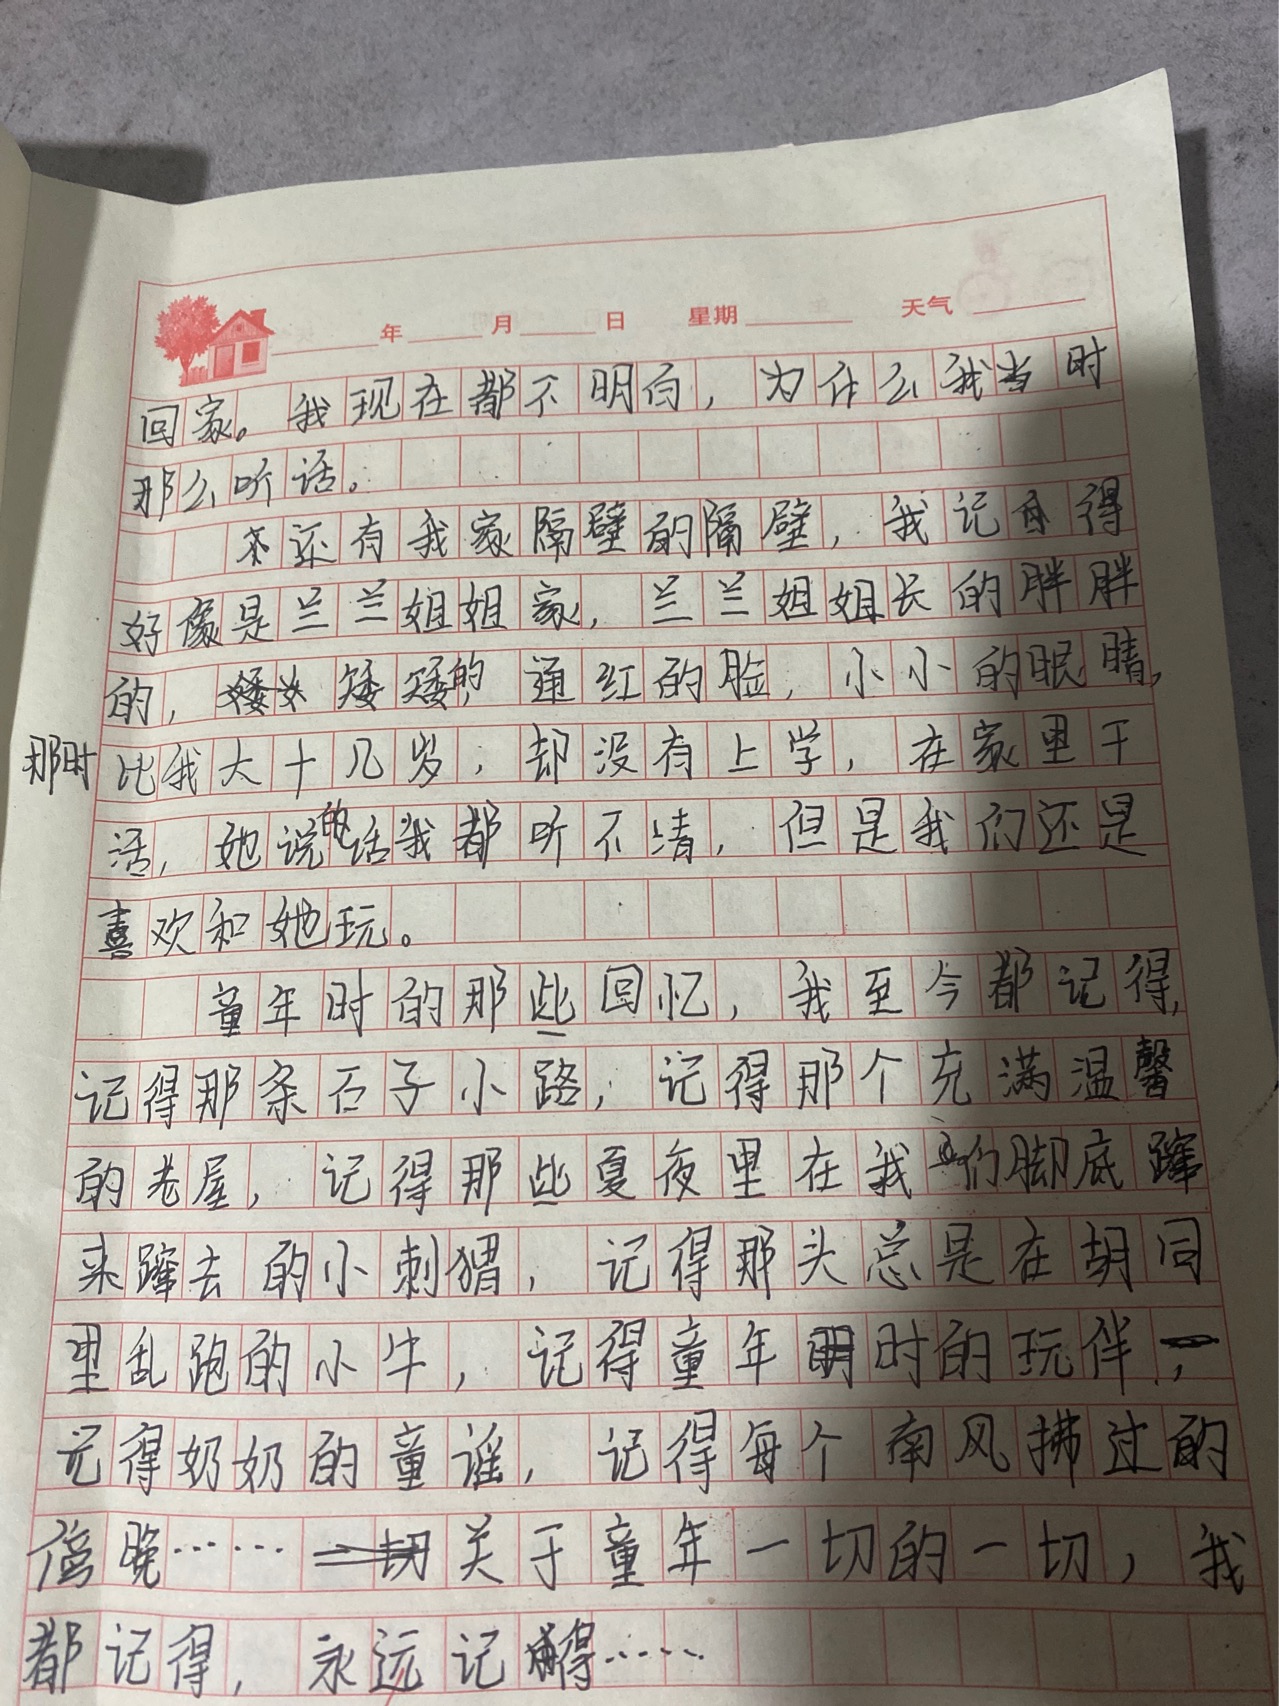 年 月 日 星期 天气
回家。我现在都不明白，为什么我当时
那么听话。
还有我家隔壁的隔壁，我记得
好像是兰兰姐姐家，兰兰姐姐长的胖胖
的，矮矮的，通红的脸，小小的眼睛，
那时比我大十几岁，却没有上学，在家里干
活，她说的话我都听不清，但是我们还是
喜欢和她玩。
童年时的那些回忆，我至今都记得，
记得那条石子小路，记得那个充满温馨
的老屋，记得那些夏夜里在我们脚底蹿
来蹿去的小刺猬，记得那头总是在胡同
里乱跑的小牛，记得童年时的玩伴，
记得奶奶的童谣，记得每个南风拂过的
傍晚……关于童年一切的一切，我
都记得，永远记得……